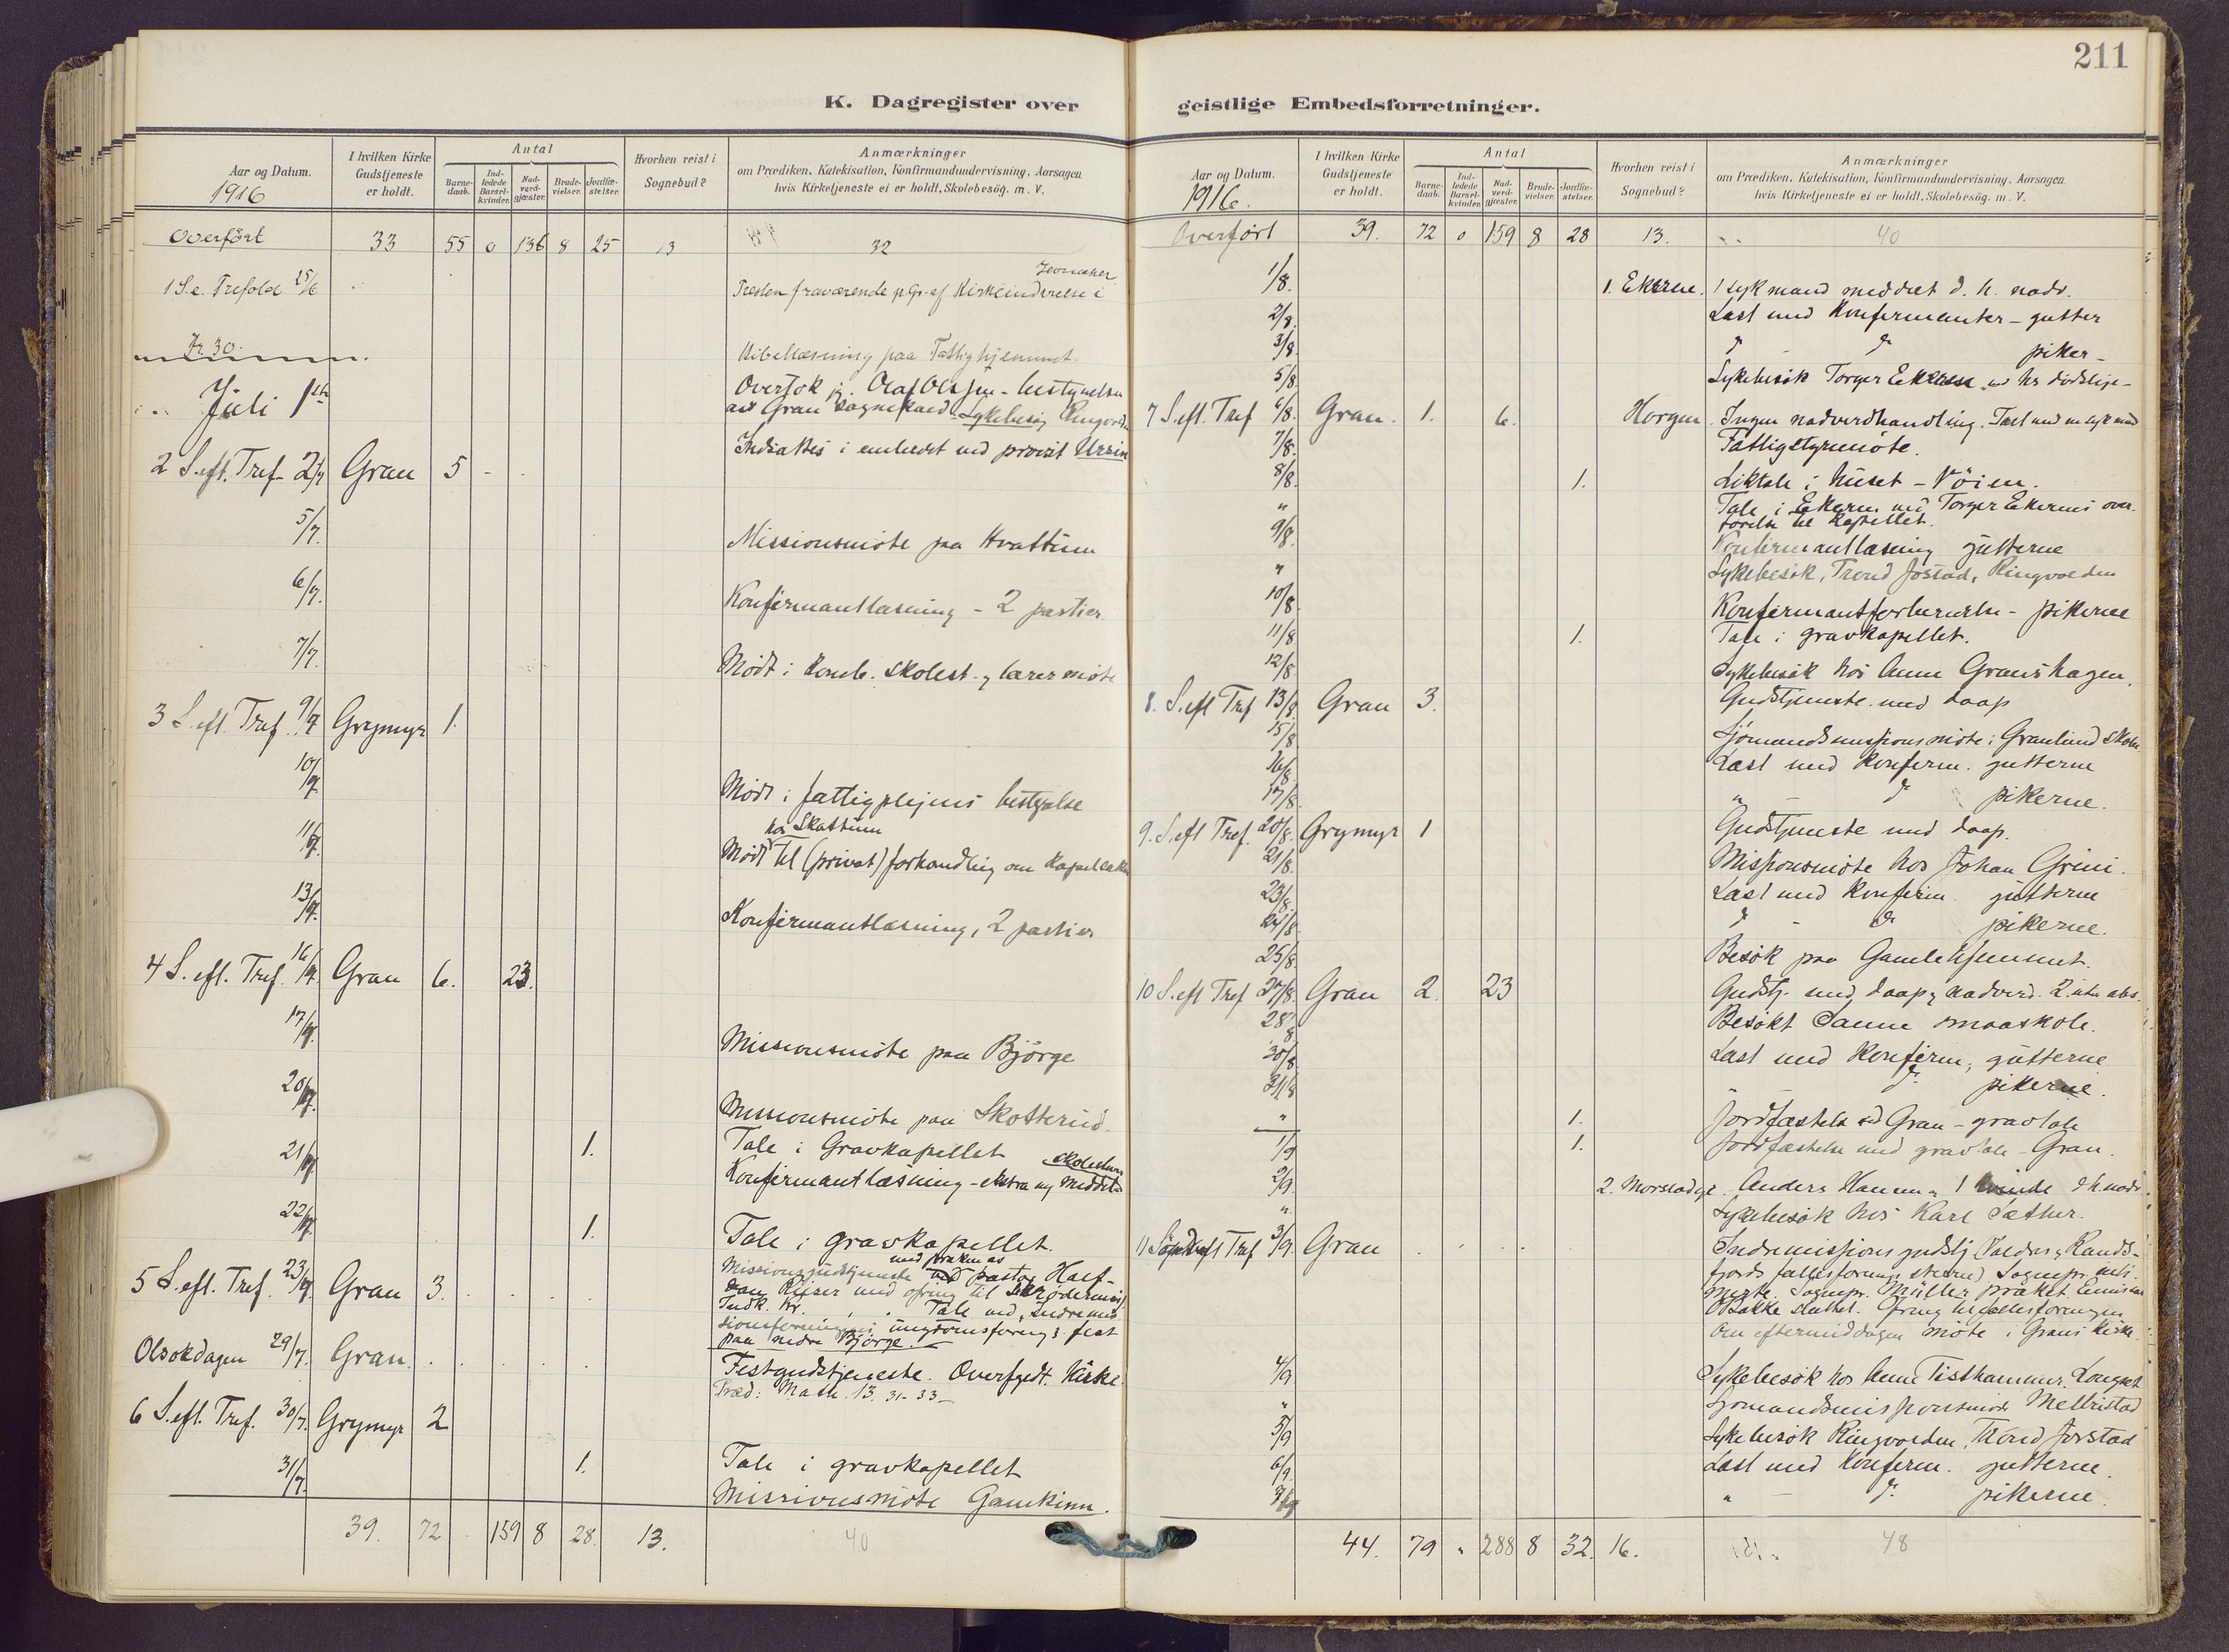 211
K. Dagregister over
geistlige Embedsforretninger.
Aar og Datum.
1916
I hvilken Kirke Gudstjeneste er holdt.
Antal
Barnedaab.
Indledede Barselkvinder.
Nadverdgjæster.
Brudevielser.
Jordfæstelser.
Hvorhen reist i Sognebud?
Anmærkninger
om Prædiken, Katekisation, Konfirmandundervisning, Aarsagen
hvis Kirketjeneste ei er holdt, Skolebesög. m. V.
Overfört 33 55 0 136 8 25 13 32
1 S. e. Trefold 25/6 Presten fraværende p. Gr. af Kirkeindvielse i Jevnaker
Fr. 30. Bibellæsning paa Fattighjemmet.
Juli 1ste Overtok jeg Olaf Olafsen - bestyrelsen
av Gran Sognekald. Sykebesøg Ringvold
2 S. eft. Tref. 2/7 Gran 5 - Indsattes i embedet ved provst Ursin
5/7. Missionsmöte paa Hvattum
6/7. Konfirmantlæsning - 2 partier
7/7. Mödt i komb. skolest. og lærermöte
3 S. eft. Tref. 9/7 Grymyr 1.
10/7. Mödt i fattigplejens bestyrelse
11/7. hos Skattum
Mödt til (privat) forhandling om kapellaken
13/7. Konfirmantlæsning, 2 partier
4 S. eft. Tref. 16/7. Gran 6. 23.
17/7. Missionsmöte paa Björge
20/7. Missionsmöte paa Skotterud.
21/7. 1. Tale i Gravkapellet
Konfirmantlæsning - ekstra og
22/7. 1. Tale i gravkapellet.
5 S. eft. Tref. 23/7. Gran 3. Missionsgudstjeneste med præken av pastor Half-
dan med ofring til
Indk. Kr. Tale ved Indremis-
sionsforeningens ungdomsforenings fest
paa nedre Björge.
Olsokdagen 29/7. Gran. Festgudstjeneste. Overfyldt Kirke.
Præd: Math. 13. 31-33
6 S. eft. Tref. 30/7. Grymyr 2
31/7. 1. Tale i gravkapellet
Missionsmöte Gamkinn.
39. 72 - 159 8 28. 13. 40
Aar og Datum.
1916.
I hvilken Kirke Gudstjeneste er holdt.
Antal
Barnedaab.
Indledede Barselkvinder.
Nadverdgjæster.
Brudevielser.
Jordfæstelser.
Hvorhen reist i Sognebud?
Anmærkninger
om Prædiken, Katekisation, Konfirmandundervisning, Aarsagen
hvis Kirketjeneste ei er holdt, Skolebesög. m. V.
Overfört 39. 72 0 159 8 28 13. 40
1/8. 1. Ekerne. 1 syk mand meddelt d. h. nadv.
2/8. Læst med Konfirmanter - gutter
3/8. do - do piker -
5/8. Sykebesök Torger Ekerne
7 S. eft. Tref 6/8. Gran. 1. 6. Horgen. Ingen nadverdhandling. Talt med en syk mand
7/8. Fattigstyremöte.
8/8. 1. Liktale i huset - Vöien.
" Tale i Ekerne ved Torger Ekernes over-
förelse til kapellet.
9/8. Konfirmantlæsning gutterne
" Sykebesök, Trond Jostad, Ringvolden
10/8 Konfirmantforberedelse - pikerne
11/8 1. Tale i gravkapellet.
12/8. Sykebesök hos Anne Granshagen.
8. S. eft Tref 13/8. Gran 3. Gudstjeneste med daap
15/8 Sjömandsmissionsmöte i Granlund skole
16/8. Læst med konfirm. gutterne
17/8. " - do pikerne.
9. S. eft Tref. 20/8. Grymyr 1 Gudstjeneste med daap.
21/8. Missionsmöte hos Johan Grini.
23/8. Læst med konfirm. gutterne
24/8. do - do pikerne.
25/8. Besök paa Gamlehjemmet.
10 S. eft Tref 27/8. Gran 2. 23 Gudstj. med daap og nadverd. 2 uten abs.
28/8 Besökt Sanne smaaskole.
30/8 Læst med konfirm. gutterne
31/8 do pikerne.
" 1. Jordfæstelse ved Gran - gravtale
1/9 1. Jordfæstelse med gravtale - Gran.
2/9. 2. Anders Hansen og 1 kvinde d. h. nadv.
". Sykebesök hos Karl Sæther.
11 Söndag eft Tref 3/9. Gran Indremissionsgudstj. Valdres og Rands-
fjords fællesforening Sognepr.
Sognepr. Müller prækte. Emissær
Bakke sluttet. Ofring til fællesforeningen
Om eftermiddagen möte i Grans Kirke.
4/9 Sykebesök hos Anne Tisthammer.
" Sjömandsmissionsmöte Mellristad
5/9 Sykebesök Ringvolden, Trond Jorstad
6/9. Læst med konfirm. gutterne.
7/9 " - do pikerne.
44. 79 " 288 8 32. 16. 48